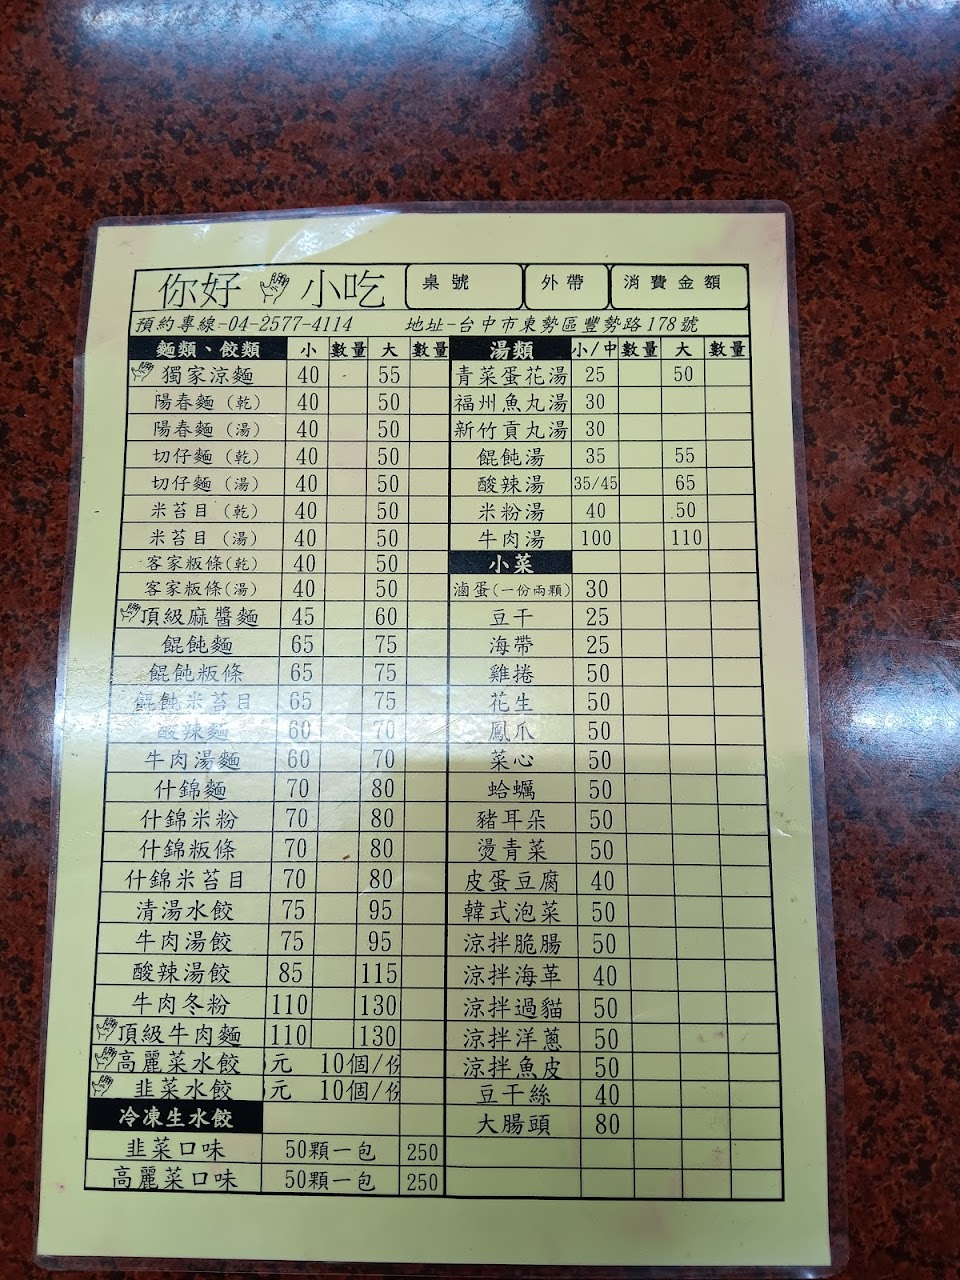 你好 小吃 桌號 外帶 消費金額
預約專線-04-2577-4114 地址-台中市東勢區豐勢路178號
麵類、餃類 小 數量 大 數量
獨家涼麵 40 55
陽春麵(乾) 40 50
陽春麵(湯) 40 50
切仔麵(乾) 40 50
切仔麵(湯) 40 50
米苔目(乾) 40 50
米苔目(湯) 40 50
客家粄條(乾) 40 50
客家粄條(湯) 40 50
頂級麻醬麵 45 60
餛飩麵 65 75
餛飩粄條 65 75
餛飩米苔目 65 75
酸辣麵 60 70
牛肉湯麵 60 70
什錦麵 70 80
什錦米粉 70 80
什錦粄條 70 80
什錦米苔目 70 80
清湯水餃 75 95
牛肉湯餃 75 95
酸辣湯餃 85 115
牛肉冬粉 110 130
頂級牛肉麵 110 130
高麗菜水餃 元 10個/份
韭菜水餃 元 10個/份
冷凍生水餃
韭菜口味 50顆一包 250
高麗菜口味 50顆一包 250
湯類 小/中 數量 大 數量
青菜蛋花湯 25 50
福州魚丸湯 30
新竹貢丸湯 30
餛飩湯 35 55
酸辣湯 35/45 65
米粉湯 40 50
牛肉湯 100 110
小菜
滷蛋(一份兩顆) 30
豆干 25
海帶 25
雞捲 50
花生 50
鳳爪 50
菜心 50
蛤蠣 50
豬耳朵 50
燙青菜 50
皮蛋豆腐 40
韓式泡菜 50
涼拌脆腸 50
涼拌海革 40
涼拌過貓 50
涼拌洋蔥 50
涼拌魚皮 50
豆干絲 40
大腸頭 80